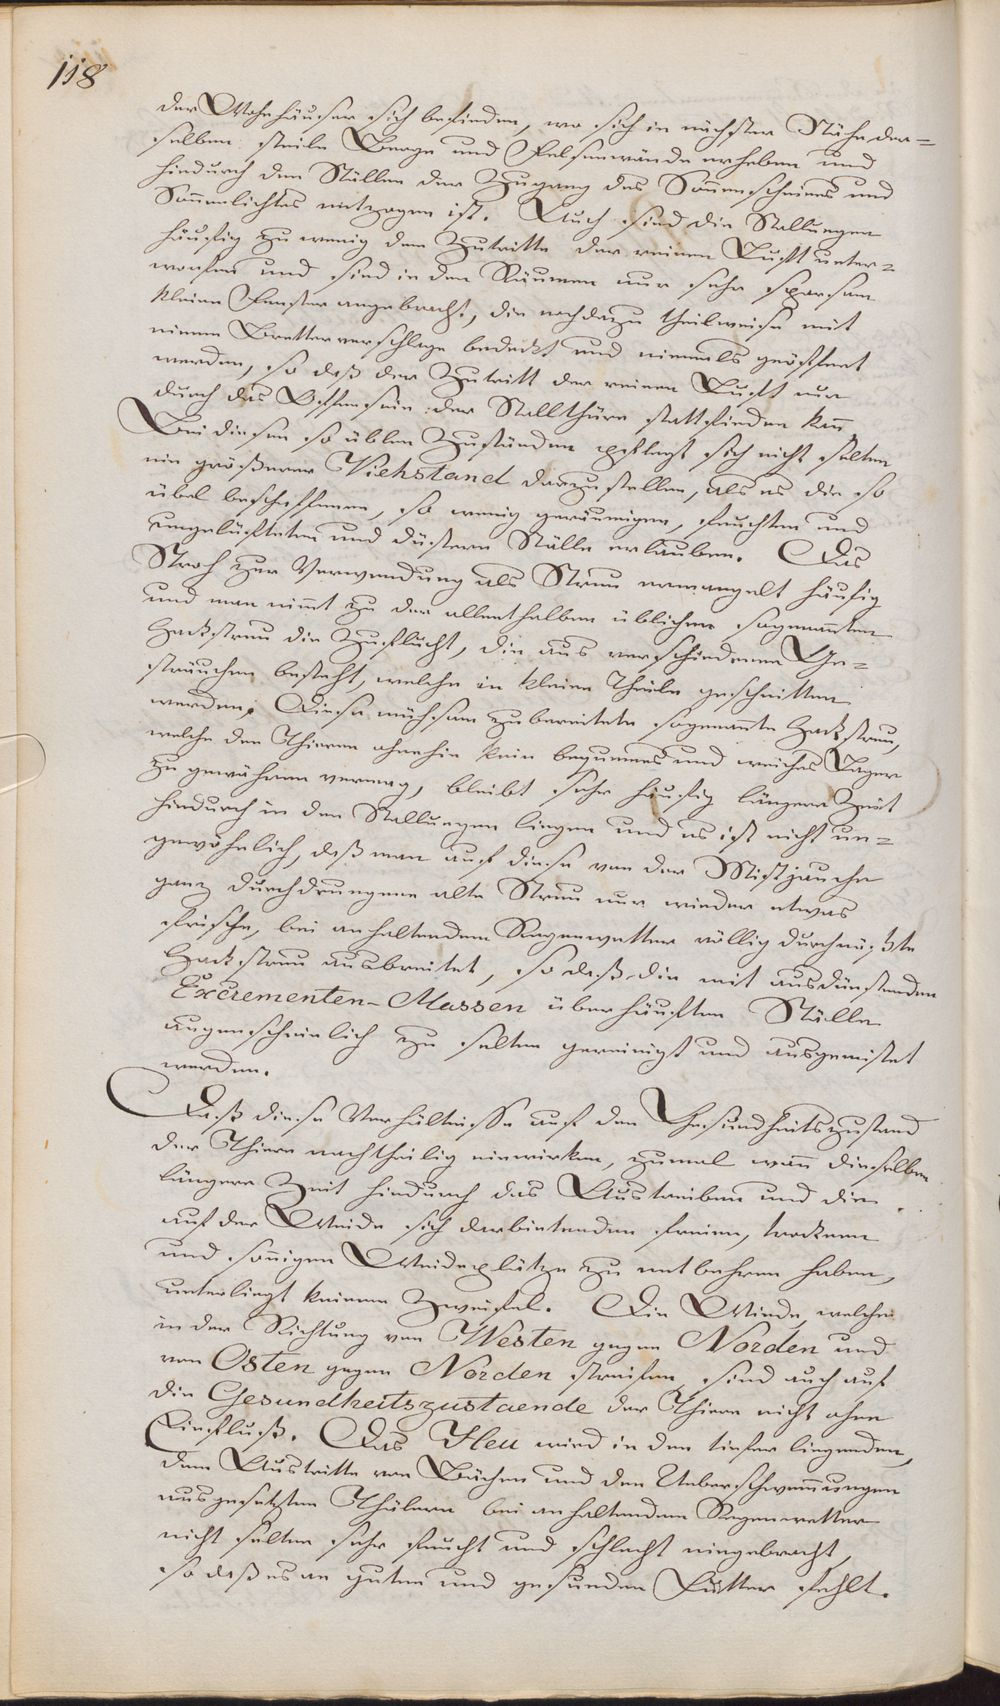 118
der Wohnhäuser sich befinden, wo sich in nächster Nähe der=
selben steile Berge und Felsenwände erheben und
hiedurch den Ställen der Zugang des Sonnenscheines und
Son̄enlichtes entzogen ist. Auch sind die Stallungen
häufig zu wenig dem Zutritte der reinen Luft unter=
worfen und sind in den Räumen nur sehr sparsam
kleine Fenster angebracht, die noch dazu theilweise mit
einem Bretterverschlage bedeckt und niemals geöffnet
werden, so daß der Zutritt der reinen Luft nur
durch das Offensein der Stallthüre stattfinden kan̄.
Bei diesen so üblen Zuständen pflegt sich nicht selten
ein größerer Viehstand darzustellen, als es die so
übel beschaffenen, so wenig geräumigen, feuchten und
ungelüfteten und düstern Ställe erlauben. Das
Stroh zur Verwendung als Streu ermangelt häufig
und man nim̄t zu der allenthalben üblichen sogenan̄ten
Hackstreu die Zuflucht, die aus verschiedenen Ge=
sträuchen besteht, welche in kleine Theile geschnitten
werden. Diese mühsam zubereitete sogenan̄te Hackstreu,
welche den Thieren ohnehin kein bequemes und weiches Lager
zu gewähren vermag, bleibt sehr häufig längere Zeit
hindurch in den Stallungen liegen und es ist nicht un=
gewöhnlich, daß man auf diese von der Mistjauche
ganz durchdrungene alte Streu nur wieder etwas
frische, bei anhaltendem Regenwetter völlig durchnäßte
Hackstreu ausbreitet, so daß die mit ausdünstenden
Excrementen-Massen überhäuften Ställe
augenscheinlich zu selten gereinigt und ausgemistet
werden.
Daß diese Verhältnisse auf den Gesundheitszustand
der Thiere nachtheilig einwirken, zumal wan̄ dieselben
längere Zeit hindurch das Austreiben und die
auf der Weide sich darbietenden freien, trockenen
und son̄igen Weideplätze zu entbehren haben,
unterliegt keinem Zweifel. Die Winde, welche
in der Richtung von Westen gegen Norden und
von Osten gegen Norden streifen, sind auch auf
die Gesundheitszustaende der Thiere nicht ohne
Einfluß. Das Heu wird in den tiefer liegenden,
dem Austritte von Bächen und den Ueberschwem̄ungen
ausgesetzten Thälern bei anhaltendem Regenwetter
nicht selten sehr feucht und schlecht eingebracht,
so daß es an gutem und gesundem Futter fehlt.